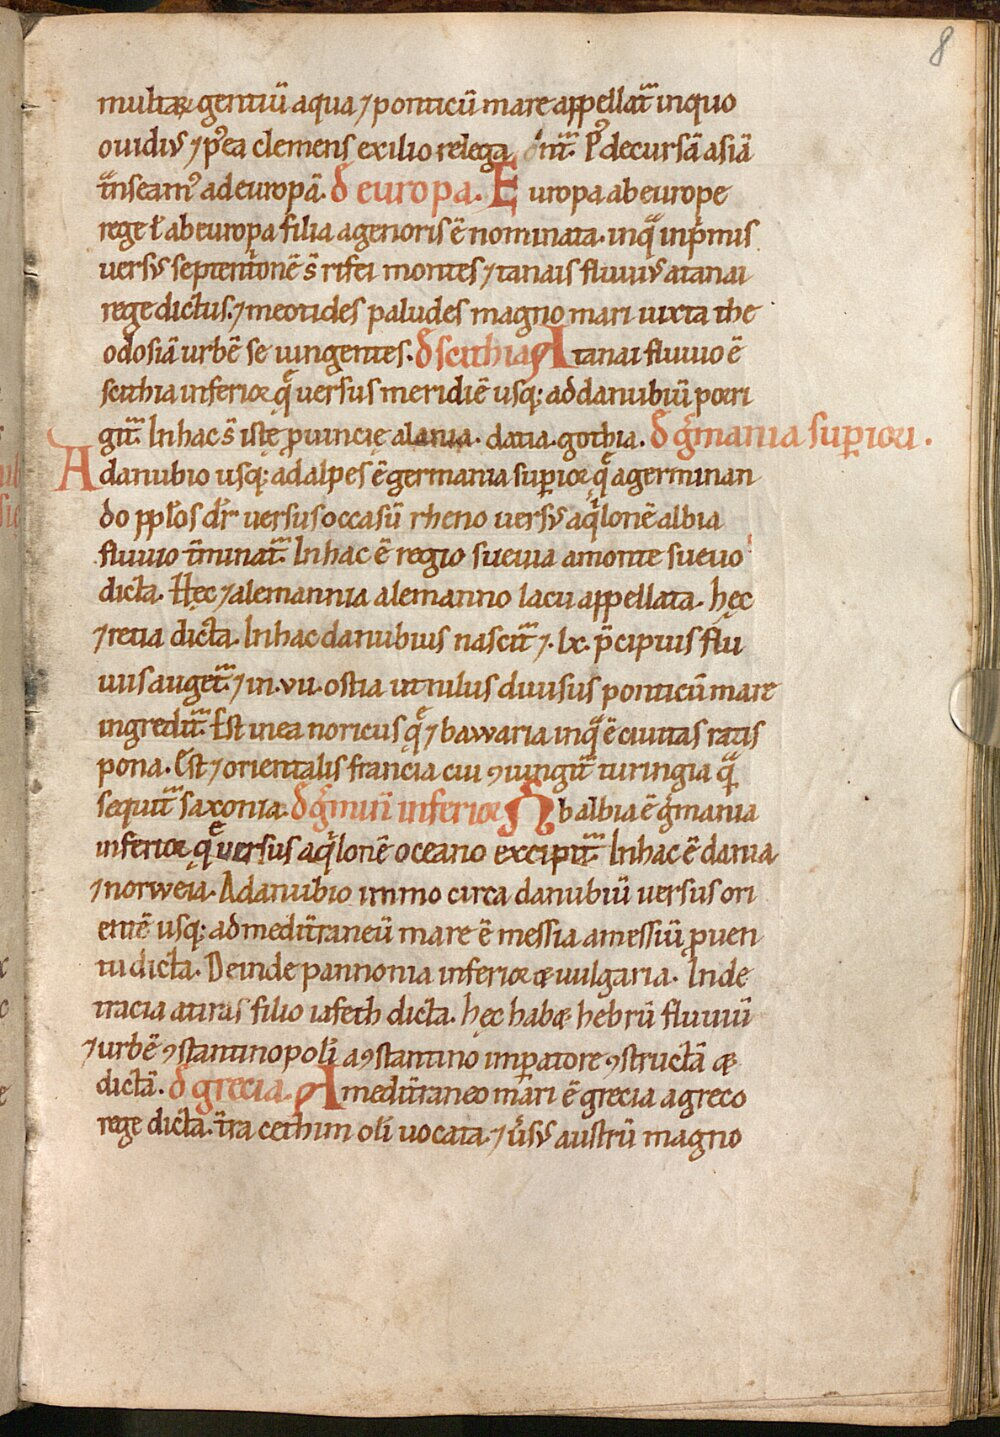 8
multaꝝ gentiū aqua ⁊ ponticū mare appellat᷑ in quo
ouidiꝰ ⁊ pꝰea clemens exilio relega nt᷑. Pꝰ decursā asiā
t̄nseamꝰ ad europā. đ europa. Europa ab europe
rege ł ab europa filia agenoris ē nominata. in qͣ inpͥmis
uersꝰ septent͛onē s̄ rifei montes ⁊ tanais fluuiꝰ a tanai
rege dictus. ⁊ meotides paludes magno mari iuxta the
odosiā urbē se iungentes. đ scithia A tanai fluuio ē
scithia inferior q̄ uersus meridiē usq; ad danubiū porri
git᷑. In hac s̄ istę ꝓuincię alania. datia. gothia. đ g̃mania suꝑiori.
A danubio usq; ad alpes ē germania suꝑior q̄ a germinan
do pp̄los dr̄ uersus occasū rheno uersꝰ aqͥlonē albia
fluuio t̄minat᷑. In hac ē regio sueuia a monte sueuo
dicta. Hęc ⁊ alemannia alemanno lacu appellata. hęc
⁊ retia dicta. In hac danubius nascit᷑ ⁊ .lx. p̄cipuis flu
uiis auget᷑. ⁊ in .vii. ostia ut nilus diuisus ponticū mare
ingredit᷑. Est in ea noricus q̄ ⁊ bawaria in qͣ ē ciuitas ratis
pona. Est ⁊ orientalis francia cui ꝯiungit᷑ turingia qͣ̄
sequit᷑ saxonia. đ g̃mañ inferior Ab albia ē g̃mania
inferior q̄ uersus aqͥlonē oceano excipit᷑. In hac ē dania
⁊ norweia. A danubio immo circa danubiū uersus ori
entē usq; ad medit̄raneū mare ē messia a messiū ꝓuen
tu dicta. Deinde pannonia inferior & uulgaria. Inde
tracia a tiras filio iafeth dicta. hęc hab& hebrū fluuiū
⁊ urbē ꝯstantinopoli a ꝯstantino imꝑatore ꝯstructā &
dictā. đ grecia. A medit̄raneo mari ē grecia a greco
rege dicta. t̄ra cethim oli uocata. ⁊ u̓sꝰ austrū magno